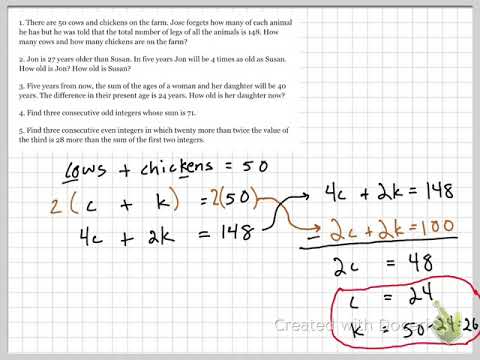 1. There are 50 cows and chickens on the farm. Jose forgets how many of each animal
he has but he was told that the total number of legs of all the animals is 148. How
many cows and how many chickens are on the farm?
2. Jon is 27 years older than Susan. In five years Jon will be 4 times as old as Susan.
How old is Jon? How old is Susan?
3. Five years from now, the sum of the ages of a woman and her daughter will be 40
years. The difference in their present age is 24 years. How old is her daughter now?
4. Find three consecutive odd integers whose sum is 71.
5. Find three consecutive even integers in which twenty more than twice the value of
the third is 28 more than the sum of the first two integers.
cows + chickens = 50
2( c + k) = 2(50)
4c + 2k = 148
4c + 2k = 148
- 2c + 2k = 100
2c = 48
c = 24
k = 50 - 24 = 26
Created with